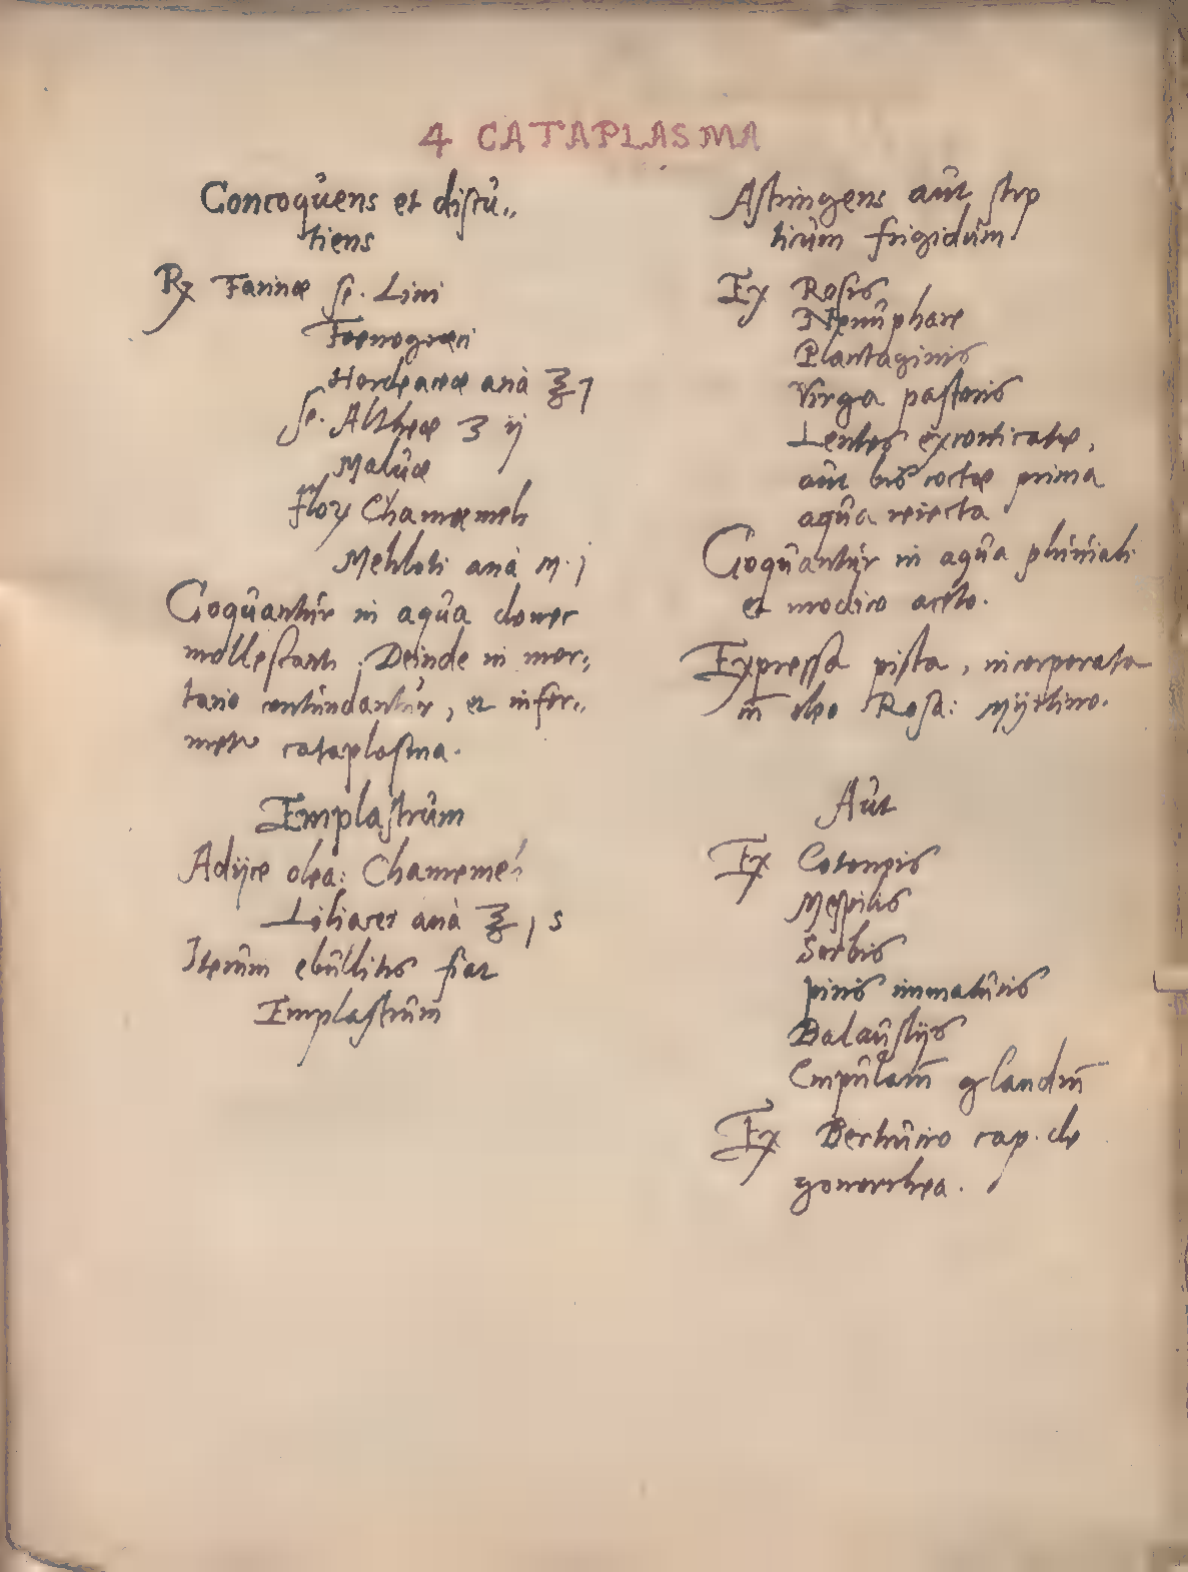 4 CATAPLASMA
Concoquens et discu„
tiens
℞ Farinæ se. Lini
Foenogræci
Hordeaceæ anà ℥ j
se. Altheæ ʒ ij
Maluæ
flor Chamæmeli
Meliloti anà M. j
Coquantur in aqua donec
mollescant. Deinde in mor„
tario contundantur, et infor„
metur cataplasma.
Emplastrum
Adijce olea: Chamemeli
Liliacei anà ℥ j s
Iterum ebullitis fiat
Emplastrum
Astringens aut stip
ticum frigidum
Ex Rosis
Nenuphare
Plantaginis
Virga pastoris
Lentes excorticatæ,
aut bis coctæ prima
aqua reiecta
Coquantur in aqua pluuiali
et modico aceto.
Expressa pista, incorporata
oleo Rosa: myrtino.
Aut
Ex Cotoneis
Mespilis
Sorbis
piris immaturis
Balaustijs
glandiū
Ex Bertrucio cap. de
gonorrhea.